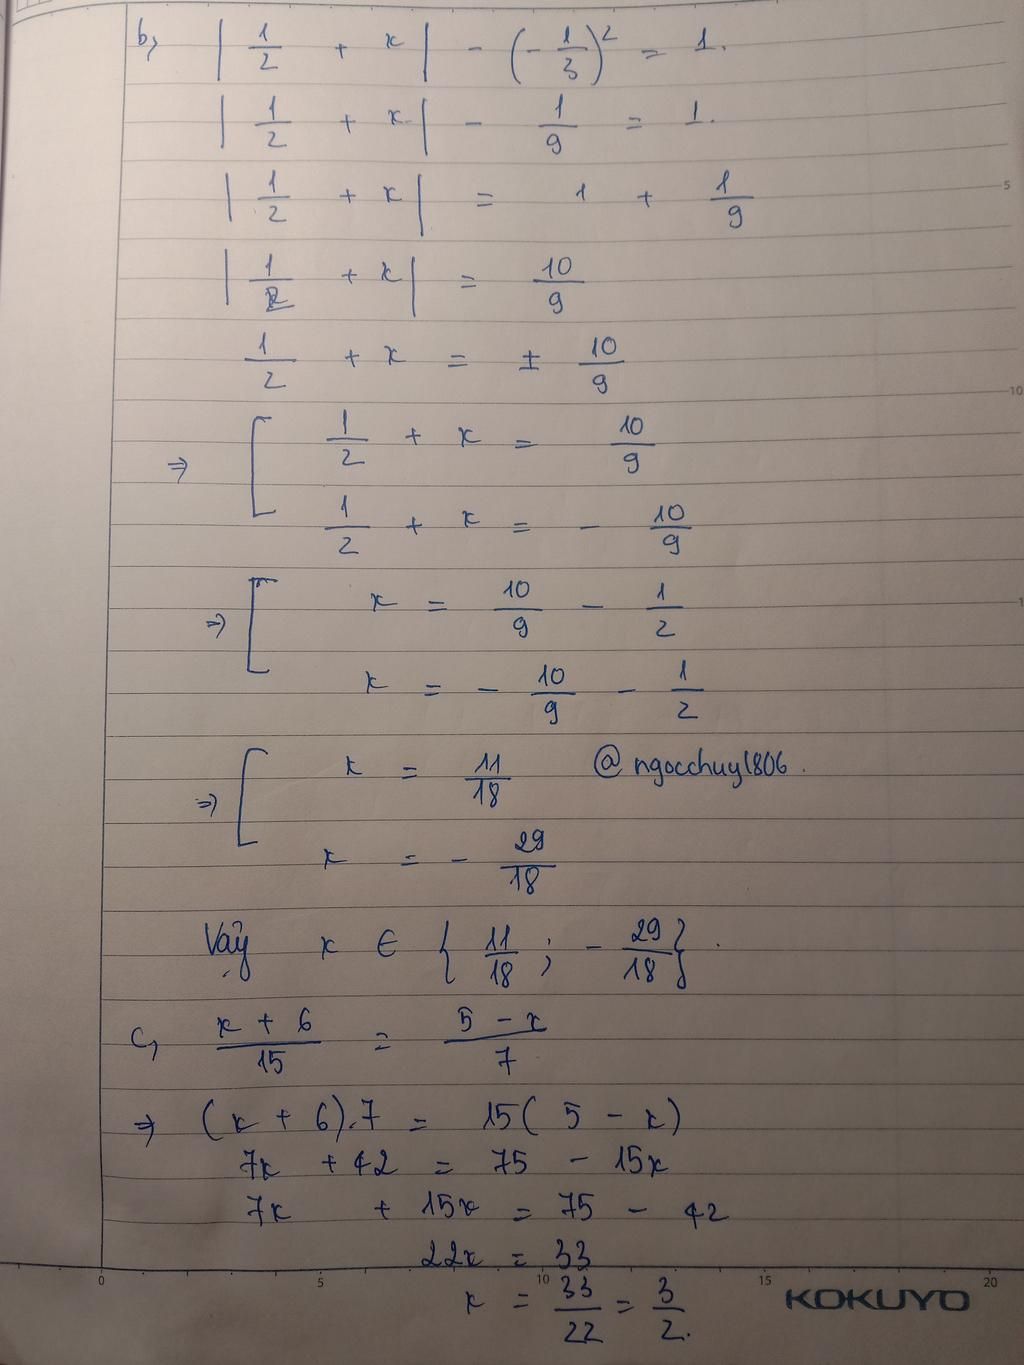 b, | 1/2 + x | - (- 1/3)² = 1.
| 1/2 + x | - 1/9 = 1.
| 1/2 + x | = 1 + 1/9
| 1/2 + x | = 10/9
1/2 + x = ± 10/9
⇒ [ 1/2 + x = 10/9
1/2 + x = - 10/9
⇒ [ x = 10/9 - 1/2
x = - 10/9 - 1/2
⇒ [ x = 11/18 @ngocchuy1806.
x = - 29/18
Vậy x ∈ { 11/18 ; - 29/18 }.
c, x + 6 / 15 = 5 - x / 7
⇒ (x + 6).7 = 15( 5 - x)
7x + 42 = 75 - 15x
7x + 15x = 75 - 42
22x = 33
x = 33/22 = 3/2.
0 5 10 15 20
KOKUYO
5
10